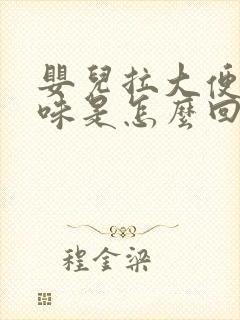 嬰兒拉大便
味是怎麼回
程金梁